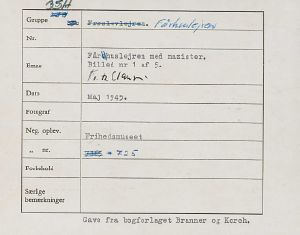 35H
Gruppe Frøslevlejren. Fårhuslejren
Nr.
Emne Fårhuslejren med nazister,
Billed nr 1 af 5.
Frits Clausen
Dato Maj 1945.
Fotograf
Neg. oplev. Frihedsmuseet
„ nr. 725
Forbehold
Særlige
bemærkninger
Gave fra bogforlaget Branner og Korch.